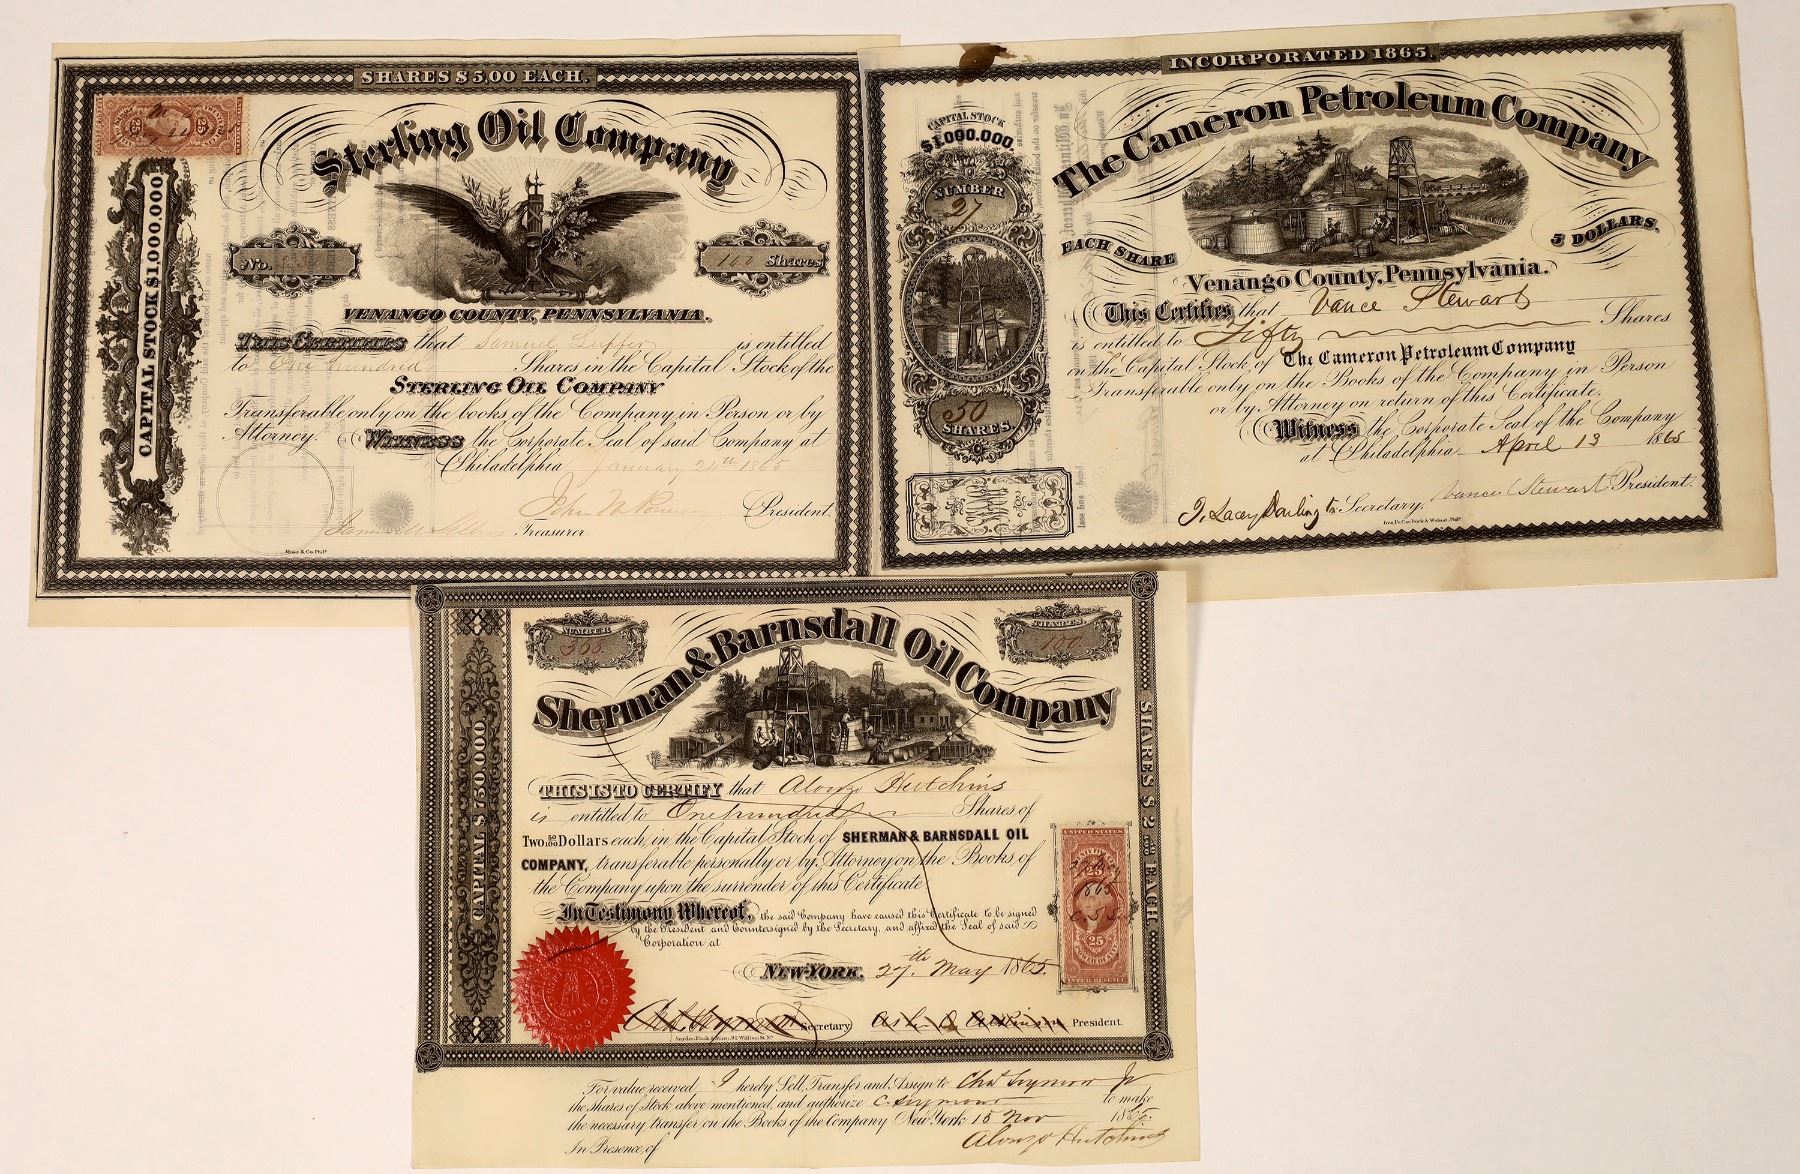 SHARES $5,00 EACH.
25 25
Sterling Oil Company
CAPITAL STOCK $1,000,000
No.
100 Shares
VENANGO COUNTY, PENNSYLVANIA.
THIS CERTIFIES that Samuel is entitled
to One hundred Shares in the Capital Stock of the
STERLING OIL COMPANY
Transferable only on the books of the Company, in Person or by
Attorney. WITNESS the Corporate Seal of said Company at
Philadelphia January 24th 1865
President.
Treasurer
INCORPORATED 1865.
The Cameron Petroleum Company
CAPITAL STOCK
$1,000.000.
NUMBER
27
EACH SHARE 5 DOLLARS.
Venango County, Pennsylvania.
This Certifies that Vance Stewart
is entitled to Fifty Shares
in the Capital Stock of The Cameron Petroleum Company
Transferable only on the Books of the Company in Person
or by Attorney on return of this Certificate.
Witness the Corporate Seal of the Company
at Philadelphia April 13 1865
50
SHARES.
J. Lacey Darlington Secretary. Vance Stewart President.
Sherman & Barnsdall Oil Company
NUMBER
SHARES.
100
CAPITAL $750.000
SHARES $ 2 50/100 EACH
THIS IS TO CERTIFY that Alonzo Hutchins
is entitled to One hundred Shares of
Two 50/100 Dollars each, in the Capital Stock of SHERMAN & BARNSDALL OIL
COMPANY, transferable personally or by Attorney on the Books of
the Company upon the surrender of this Certificate
In Testimony Whereof, the said Company have caused this Certificate to be signed
by the President and Countersigned by the Secretary, and affixed the Seal of said
Corporation at
NEW-YORK. 27th May 1865
Secretary President.
UNITED STATES
25
27 May
1865
C.S.S.
25
INTER. REVENUE
For value received I hereby Sell, Transfer and Assign to Chas Seymour Jr
the shares of Stock above mentioned, and authorize C. Seymour to make
the necessary transfer on the Books of the Company New York 15 Nov 1865.
In Presence of Alonzo Hutchins